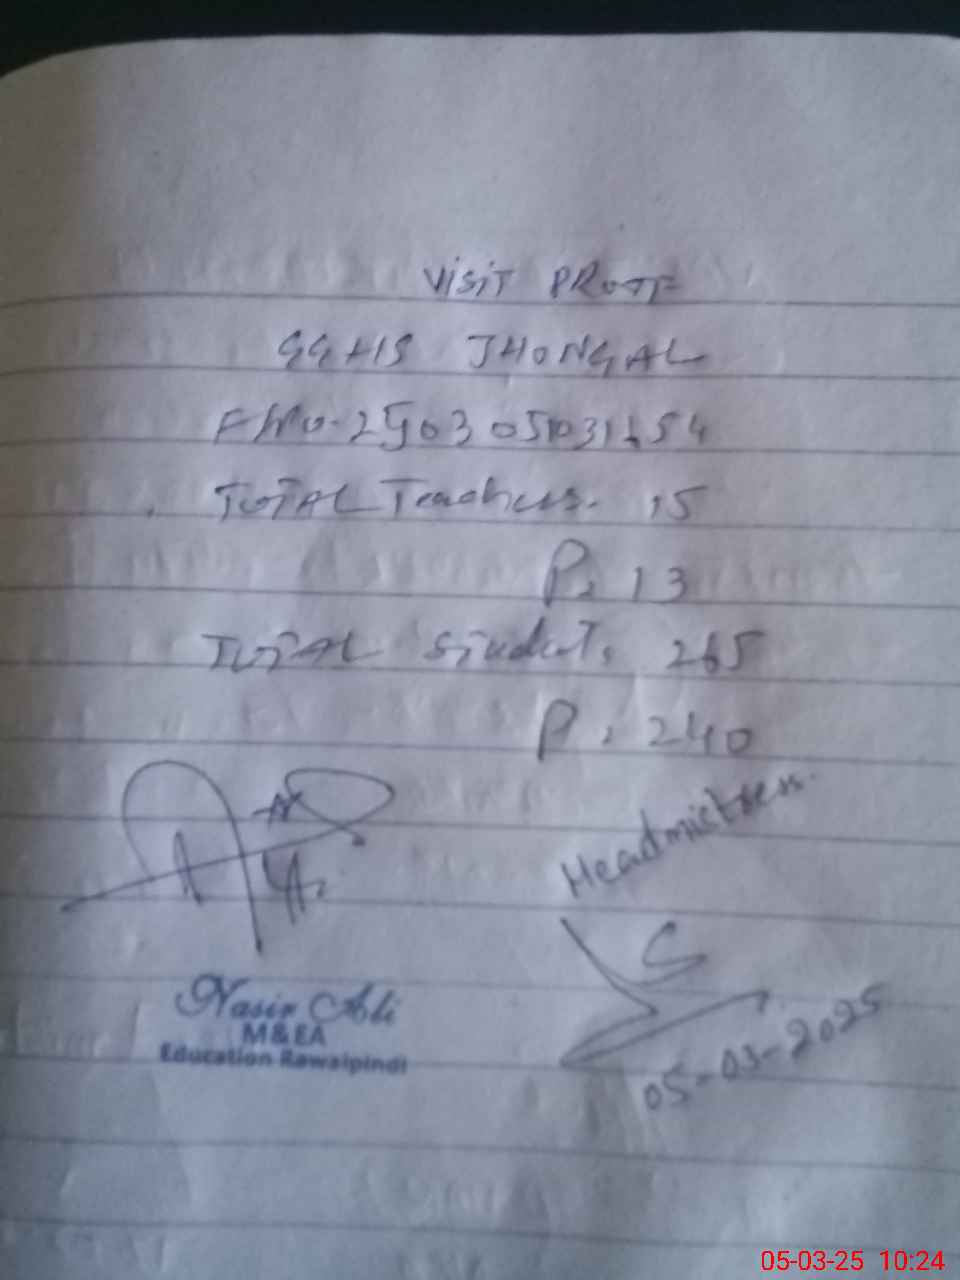 VISIT PROOF
GGHS JHONGAL
TOTAL Teachers. 15
P. 13
TOTAL Students. 265
P. 240
Headmistress.
Nasir Ali
M&EA
Education Rawalpindi
05-03-2025
05-03-25 10:24